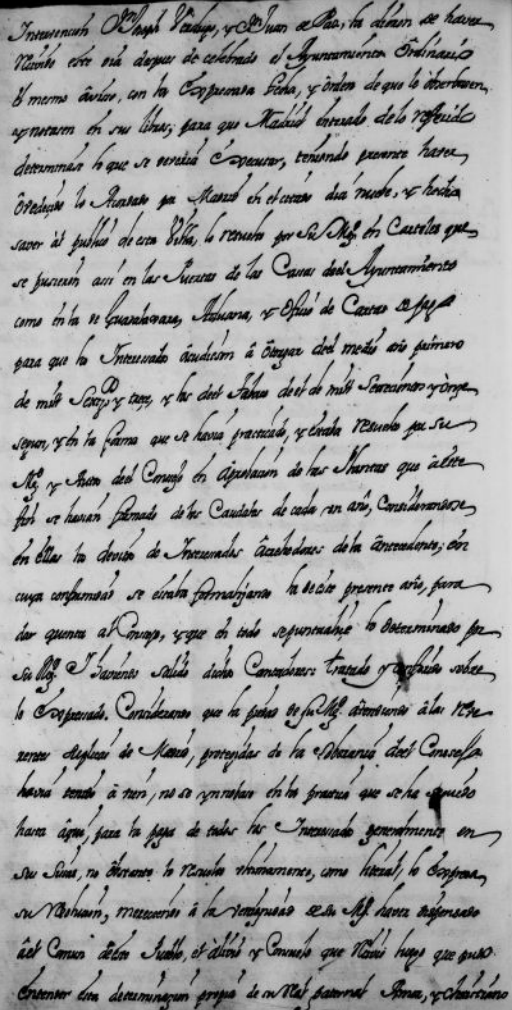 Intervención Dn Joseph Verdugo, y Dn Juan de Paz, ha devien de haver
recivido este dia despues de celebrado el Ayuntamiento Ordinario
el mismo aviso, con la expresada fecha, y orden de que lo observasen
y notasen en sus libros; para que Madrid enterado de lo referido
determinase lo que se deveria executar, teniendo presente haver
obedecido lo acordado por Madrid en el citado dia nueve, y hecho
saver al publico de esta Villa, lo resuelto por Su Mgd. en Carteles que
se pusieron assi en las Puertas de las Casas del Ayuntamiento
como en la de Guadalaxara, Aduana, y oficio de Cartas
para que los Interesados acudiesen a otorgar del medio año primero
de mill setezos y trece, y los del de mill setecientos y onze
segun, y en la forma que se havia practicado, y estava resuelto por su
Mgd. y Auto del Consejo en aprobacion de las Planttas que a este
fin se havian formado de los Caudales de cada un año, Considerandose
en ellas los devitos de Interesados Acrehedores de la antecedente; en
cuya conformidad se estava formalizando la de este presente año, para
dar quenta al Consejo, y que en todo se puntualize lo determinado por
su Mgd. I haviendo salido dichos Contadores: tratado y conferido sobre
lo expresado. Considerando que la piedad de su Mgd. atendiendo a las reve
rentes suplicas de Madrid, protegidas de la del Consejo
havia tenido a vien, no se ynnovase en la practica que se ha seguido
hasta aqui, para la paga de todos los Interesados generalmente en
sus Sisas, no obstante lo resuelto ultimamente, como literal, lo expresa
su resoluzion, mereciendo a la de su Mgd. haver dispensado
a el Comun de este Pueblo, el alivio y Consuelo que recivio luego que pudo
entender esta determinazion propia de su Real paternal Amor, y christiano